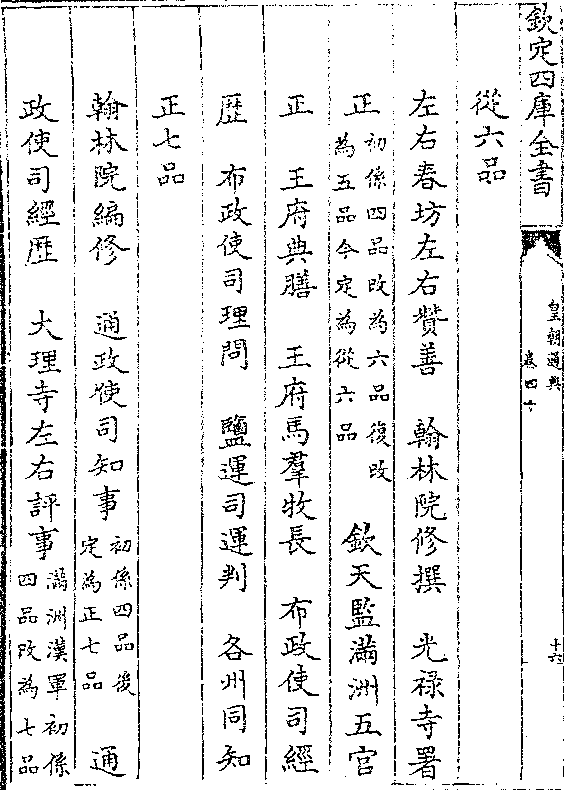 欽定四庫全書
皇朝通典
卷四十
十六
從六品
左右春坊左右贊善　翰林院修撰　光禄寺署
正
初係四品改為六品復改
為五品今定為從六品
欽天監滿洲五官
正　王府典膳　王府馬羣牧長　布政使司經
歷　布政使司理問　鹽運司運判　各州同知
正七品
翰林院編修　通政使司知事
初係四品後
定為正七品
通
政使司經歷　大理寺左右評事
滿洲漢軍初係
四品改為七品